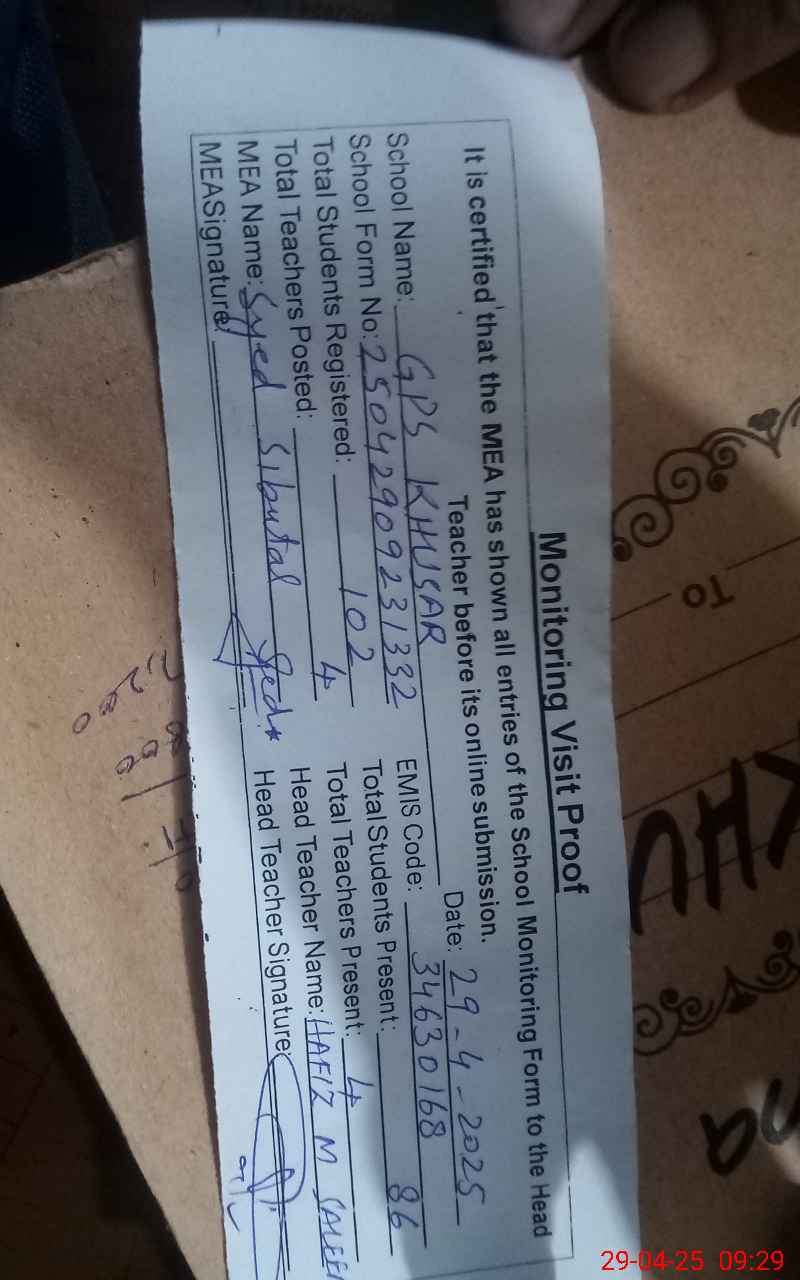 Monitoring Visit Proof
It is certified that the MEA has shown all entries of the School Monitoring Form to the Head
Teacher before its online submission.
Date: 29-4-2025
School Name: GPS KHUSAR
EMIS Code: 34630168
School Form No: 25042909231332
Total Students Present: 86
Total Students Registered: 102
Total Teachers Present: 4
Total Teachers Posted: 4
Head Teacher Name: HAFIZ M SALEEM
MEA Name: Syed Sibutal
Head Teacher Signature:
MEASignature:
TO
29-04-25 09:29